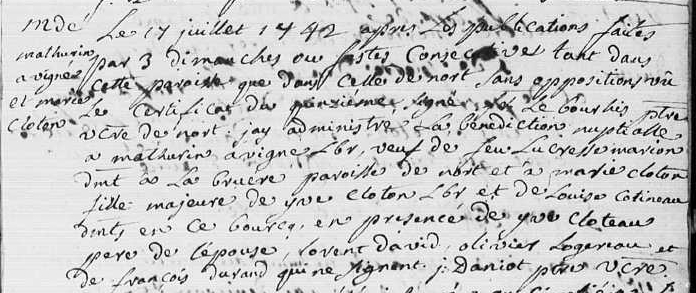 mde
mathurin
avigne
et marie
Cloton
Le 17 juillet 1742 apres Les publications faites
par 3 dimanches ou festes Consecutives tant dans
cette paroisse que dans Celle de nort sans oppositions vû
Le Certificat du quinzieme, signé Le bourhis ptre
vcre de nort jay administre La benediction nuptialle
a mathurin avigne Lbr, veuf de feu Lucresse marion
dmt a La bruere paroisse de nort et a marie Cloton
fille majeure de yve Cloton Lbr et de Louise Cotineau
dmts en Ce bourcq, en presence de yve Cloteau
pere de lepouse, lorent david, olivier Logereau et
de francois durand qui ne signent j: Daniot ptre vcre